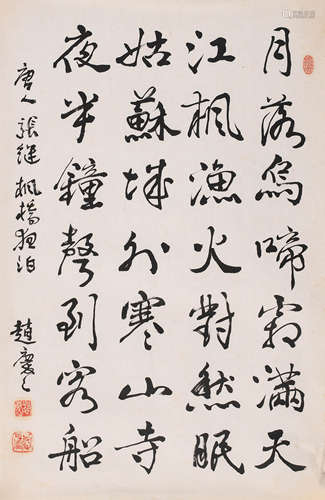 月落烏啼霜滿天
江楓漁火對愁眠
姑蘇城外寒山寺
夜半鐘聲到客船
唐人張繼楓橋夜泊
趙慶